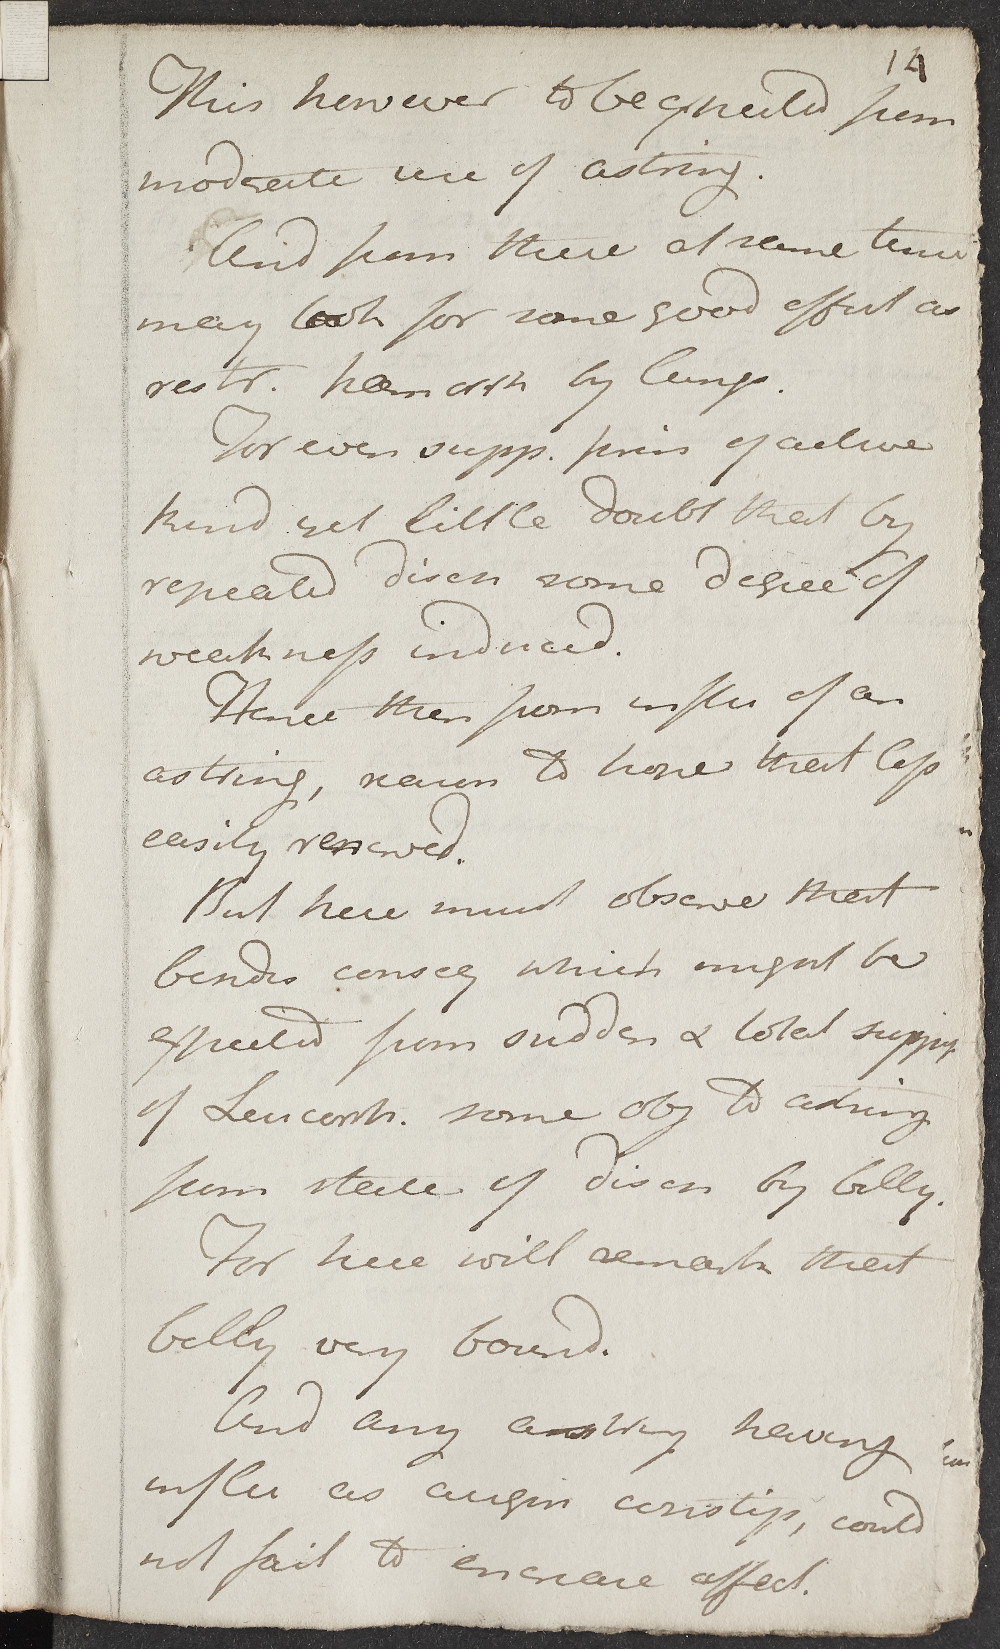 14
This however to be expected from
moderate use of astring.
And from these at same time
may look for some good effect as
restr. hæmorrh by lungs.
For even supp. prim of active
kind yet little doubt that by
repeated disch some degree of
weakness induced.
Hence then from influ of an
astring, reason to hope that less
easily renewed.
But here must observe that
besides conseq which might be
expected from sudden & total supp
of Leucorrh. some obj to astring
from state of disch by belly.
For here will remark that
belly very bound.
And any astring having
influ as augm constip, could
not fail to encrease affect.